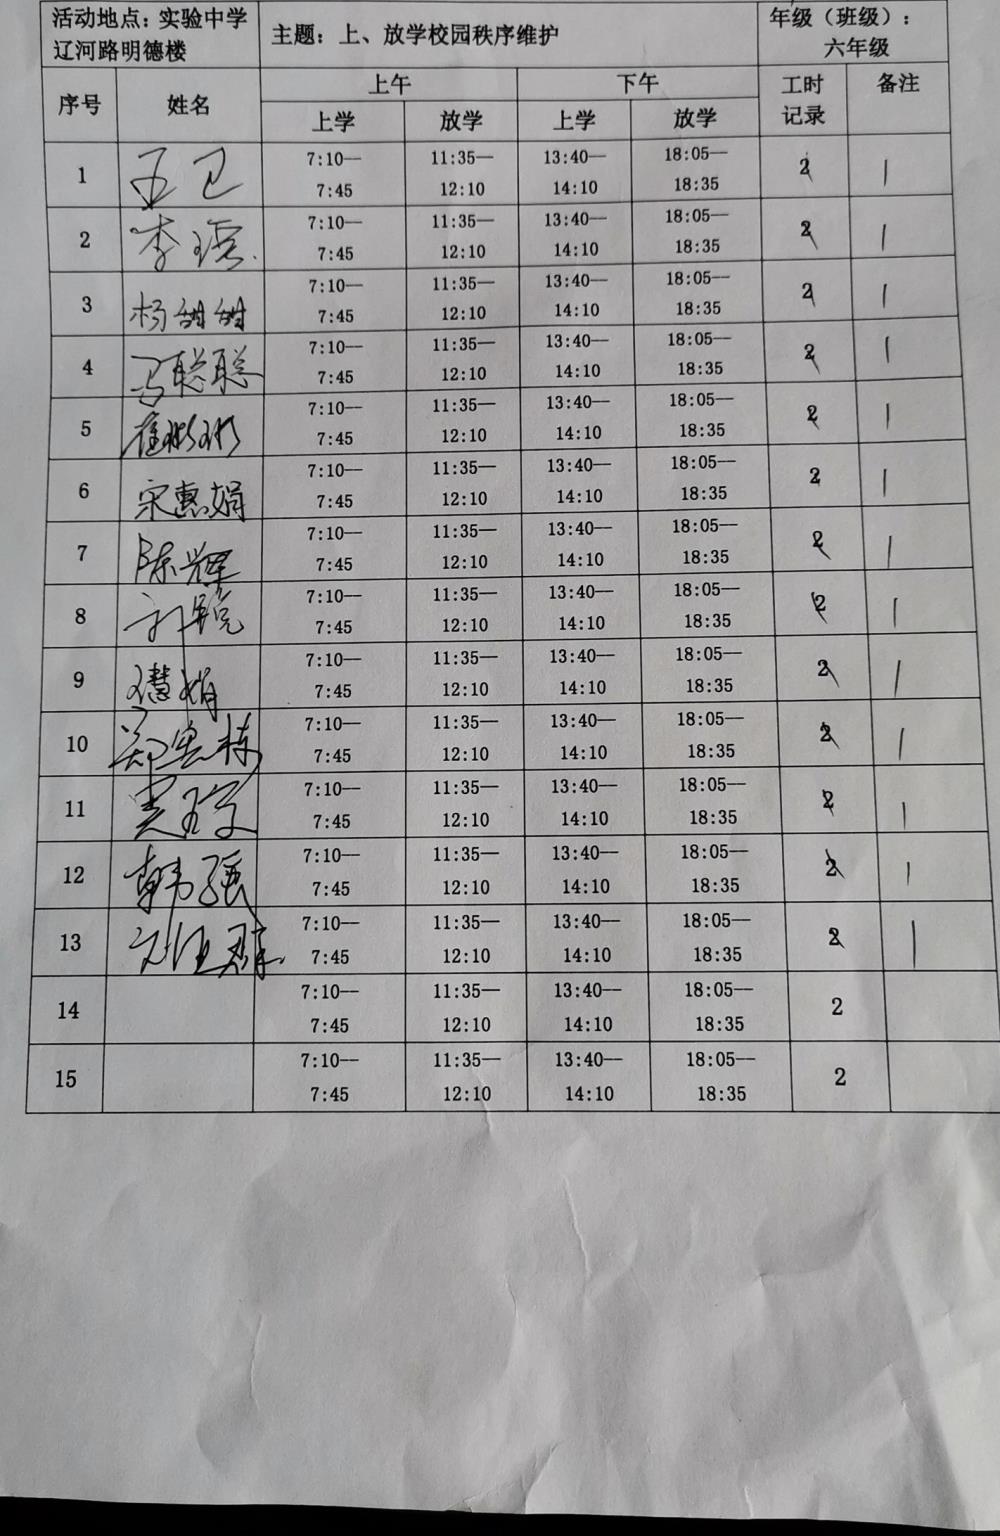 活动地点：实验中学
辽河路明德楼
主题：上、放学校园秩序维护
年级（班级）：
六年级
序号 姓名 上午 下午 工时 备注
上学 放学 上学 放学 记录
1 王卫 7:10— 11:35— 13:40— 18:05— 2 1
7:45 12:10 14:10 18:35
2 李 7:10— 11:35— 13:40— 18:05— 2 1
7:45 12:10 14:10 18:35
3 杨甜甜 7:10— 11:35— 13:40— 18:05— 2 1
7:45 12:10 14:10 18:35
4 马聪聪 7:10— 11:35— 13:40— 18:05— 2 1
7:45 12:10 14:10 18:35
5 崔彬彬 7:10— 11:35— 13:40— 18:05— 2 1
7:45 12:10 14:10 18:35
6 宋惠娟 7:10— 11:35— 13:40— 18:05— 2 1
7:45 12:10 14:10 18:35
7 陈辉 7:10— 11:35— 13:40— 18:05— 2 1
7:45 12:10 14:10 18:35
8 7:10— 11:35— 13:40— 18:05— 2 1
7:45 12:10 14:10 18:35
9 7:10— 11:35— 13:40— 18:05— 2 1
7:45 12:10 14:10 18:35
10 7:10— 11:35— 13:40— 18:05— 2 1
7:45 12:10 14:10 18:35
11 7:10— 11:35— 13:40— 18:05— 2 1
7:45 12:10 14:10 18:35
12 韩强 7:10— 11:35— 13:40— 18:05— 2 1
7:45 12:10 14:10 18:35
13 7:10— 11:35— 13:40— 18:05— 2 1
7:45 12:10 14:10 18:35
14 7:10— 11:35— 13:40— 18:05— 2
7:45 12:10 14:10 18:35
15 7:10— 11:35— 13:40— 18:05— 2
7:45 12:10 14:10 18:35